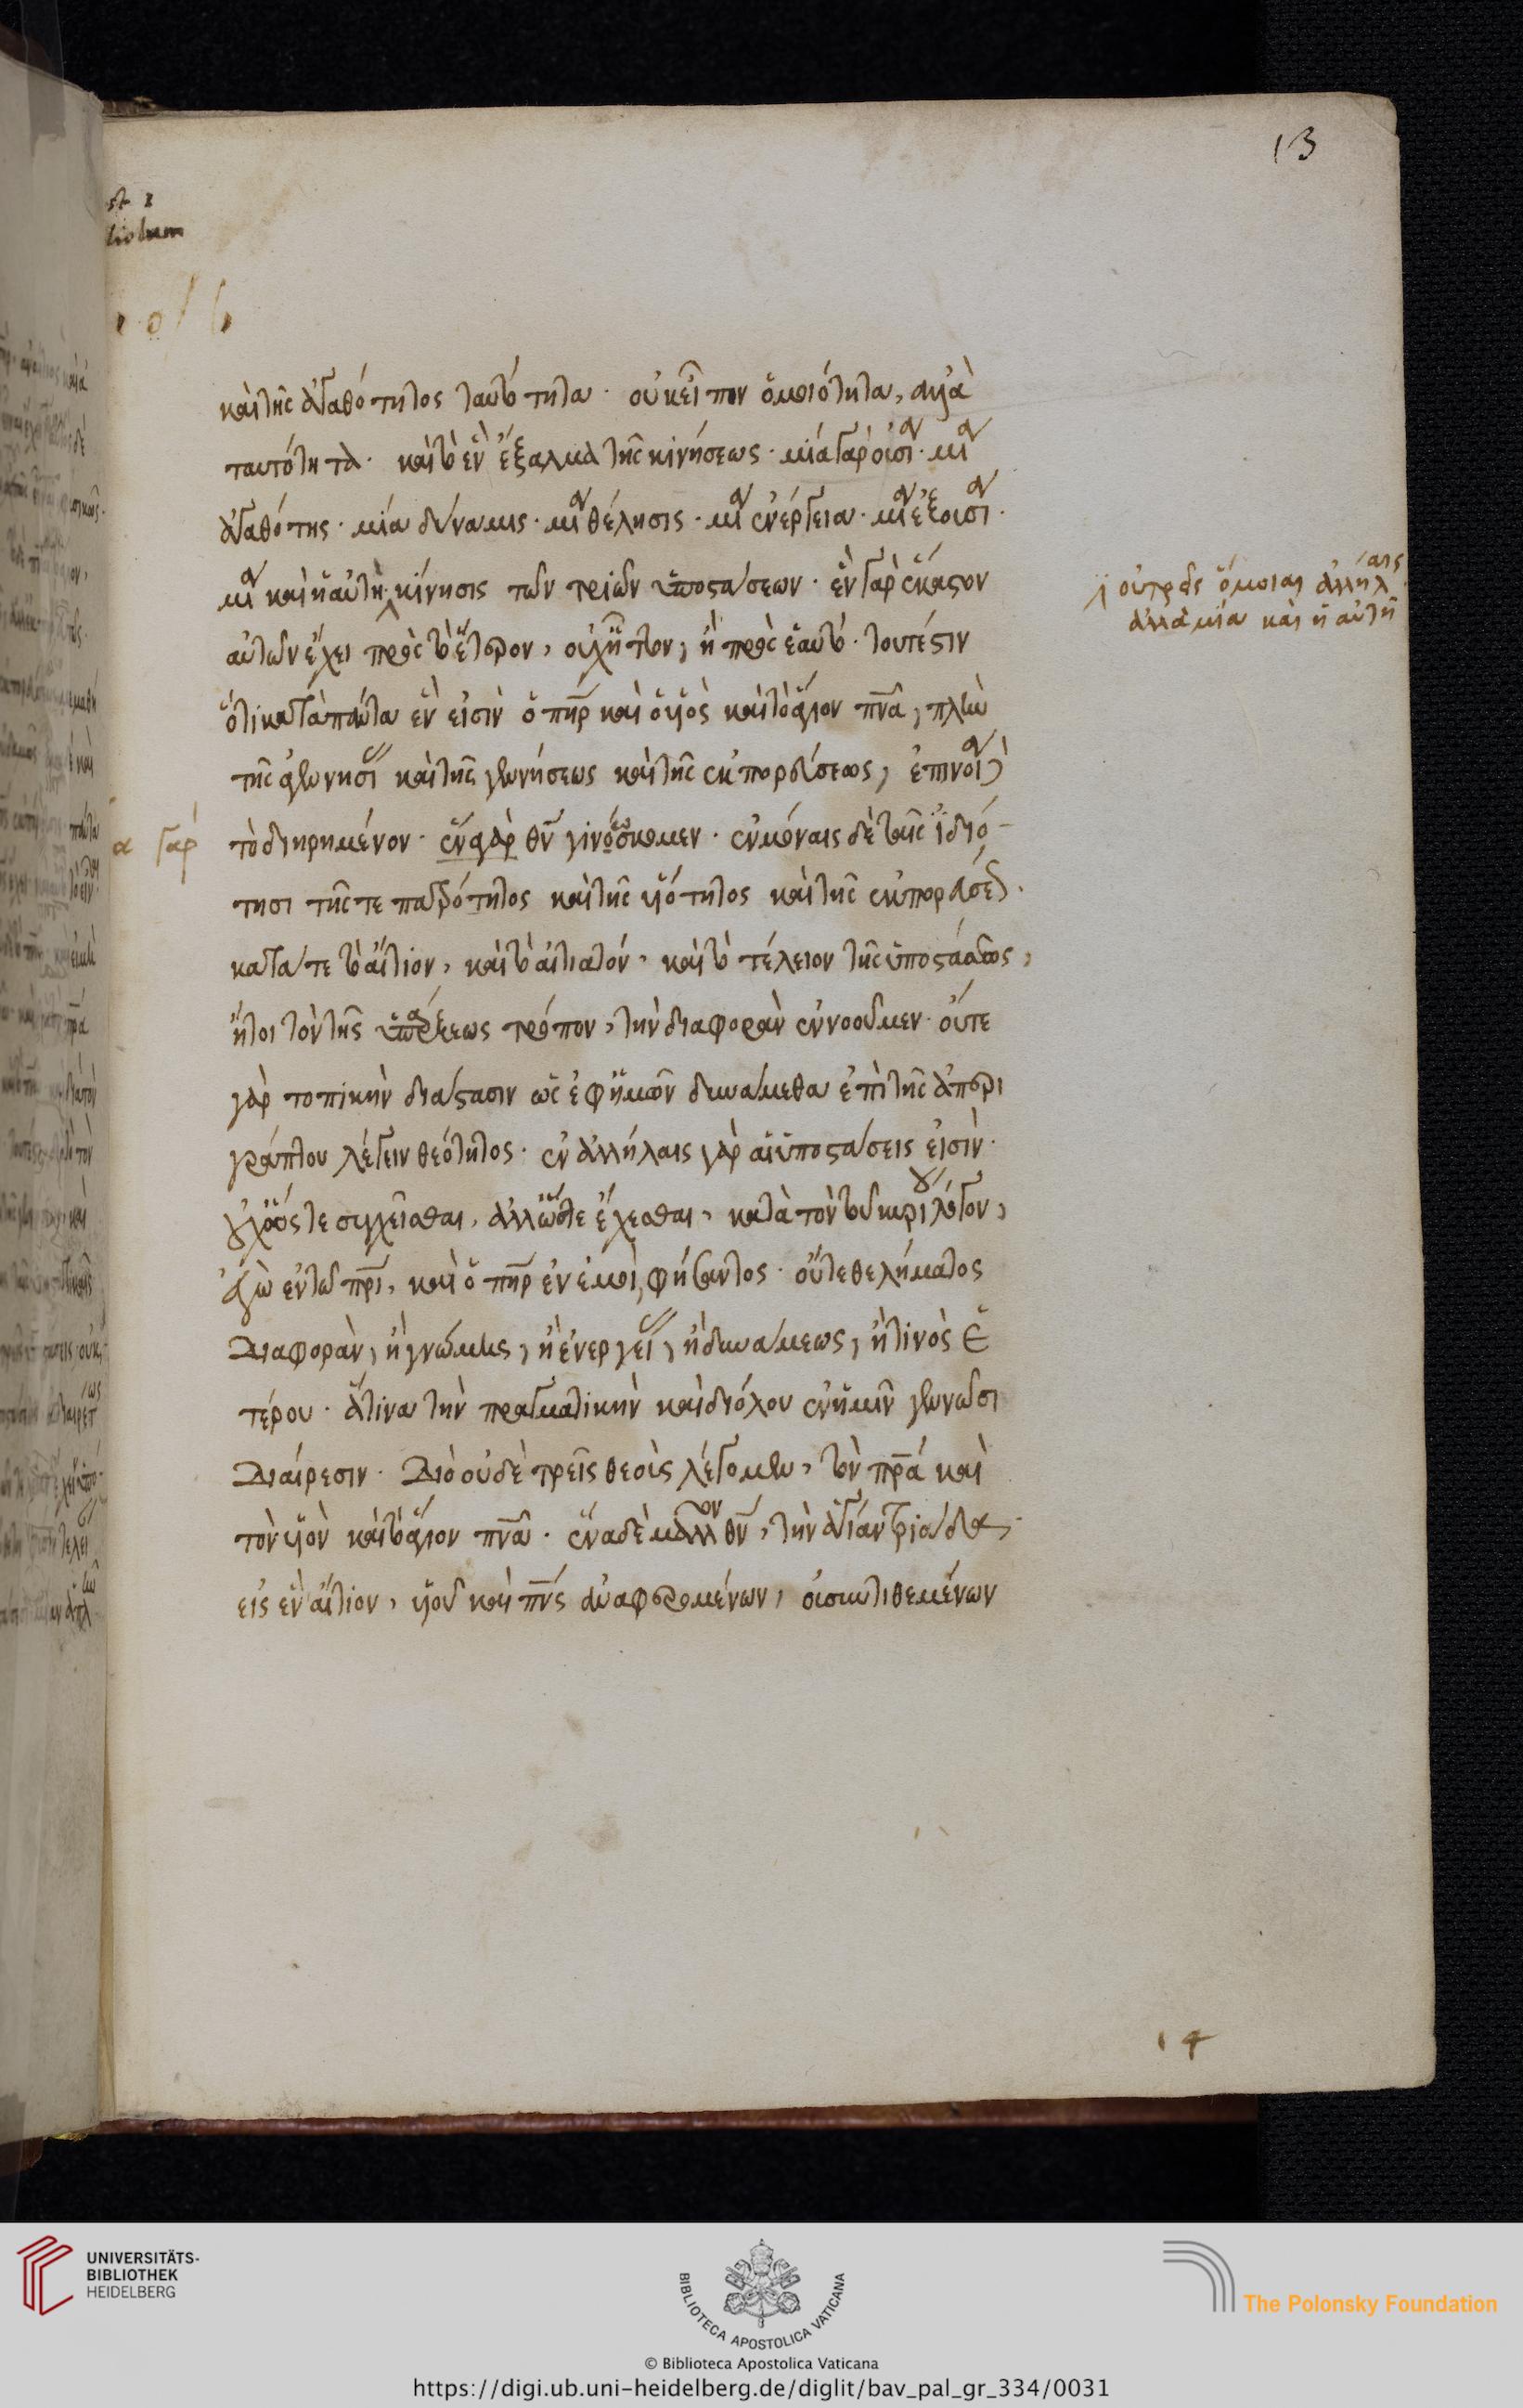 13
καὶ τῆς ἀγαθότητος ταυτότητα· οὐκ εἶπον ὁμοιότητα, ἀλλὰ
ταυτότητα· καὶ τὸ ἓν ἔξαλμα τῆς κινήσεως· μία γὰρ οὐσία· μία
ἀγαθότης· μία δύναμις· μία θέλησις· μία ἐνέργεια· μία ἐξουσία·
μία καὶ ἡ αὐτὴ κίνησις τῶν τριῶν ὑποστάσεων· ἓν γὰρ ἕκαστον
οὐ τρεῖς ὅμοιαι ἀλλήλαις
ἀλλὰ μία καὶ ἡ αὐτὴ
αὐτῶν ἔχει πρὸς τὸ ἕτερον, οὐχ ἧττον, ἢ πρὸς ἑαυτό· τουτέστιν
ὅτι κατὰ πάντα ἕν εἰσιν ὁ πηρ καὶ ὁ υἱὸς καὶ τὸ ἅγιον πνα, πλὴν
τῆς ἀγεννησίας καὶ τῆς γεννήσεως καὶ τῆς ἐκπορεύσεως, ἐπινοίᾳ
α γὰρ
τὸ διηρημένον· ἓν γὰρ θν γινώσκομεν· ἐν μόναις δὲ ταῖς ἰδιό-
τησι τῆς τε πατρότητος καὶ τῆς υἱότητος καὶ τῆς ἐκπορεύσεως·
κατά τε τὸ αἴτιον, καὶ τὸ αἰτιατόν, καὶ τὸ τέλειον τῆς ὑποστάσεως,
ἤτοι τὸν τῆς ὑπάρξεως τρόπον, τὴν διαφορὰν ἐννοοῦμεν· οὔτε
γὰρ τοπικὴν διάστασιν ὡς ἐφ ἡμῶν δυνάμεθα ἐπὶ τῆς ἀπερι
γράπτου λέγειν θεότητος· ἐν ἀλλήλαις γὰρ αἱ ὑποστάσεις εἰσίν·
οὐχ ὥστε συγχεῖσθαι, ἀλλ ὥστε ἔχεσθαι, κατὰ τὸν τοῦ κυρίου λόγον,
ἐγὼ ἐν τῶ πρι, καὶ ὁ πηρ ἐν ἐμοί, φήσαντος· οὔτε θελήματος
διαφορὰν, ἢ γνώμης, ἢ ἐνεργείας, ἢ δυνάμεως, ἤ τινος ἑ
τέρου· ἅτινα τὴν πραγματικὴν καὶ διόλου ἐν ἡμῖν γεννῶσι
διαίρεσιν· διὸ οὐδὲ τρεῖς θεοὺς λέγομεν, τὸν πρα καὶ
τὸν υἱὸν καὶ τὸ ἅγιον πνα· ἕνα δὲ μᾶλλον θν, τὴν ἁγίαν τριάδα,
εἰς ἓν αἴτιον, υἱοῦ καὶ πνς ἀναφερομένων, οὐ συντιθεμένων
14
UNIVERSITÄTS-
BIBLIOTHEK
HEIDELBERG
BIBLIOTECA APOSTOLICA VATICANA
The Polonsky Foundation
© Biblioteca Apostolica Vaticana
https://digi.ub.uni-heidelberg.de/diglit/bav_pal_gr_334/0031